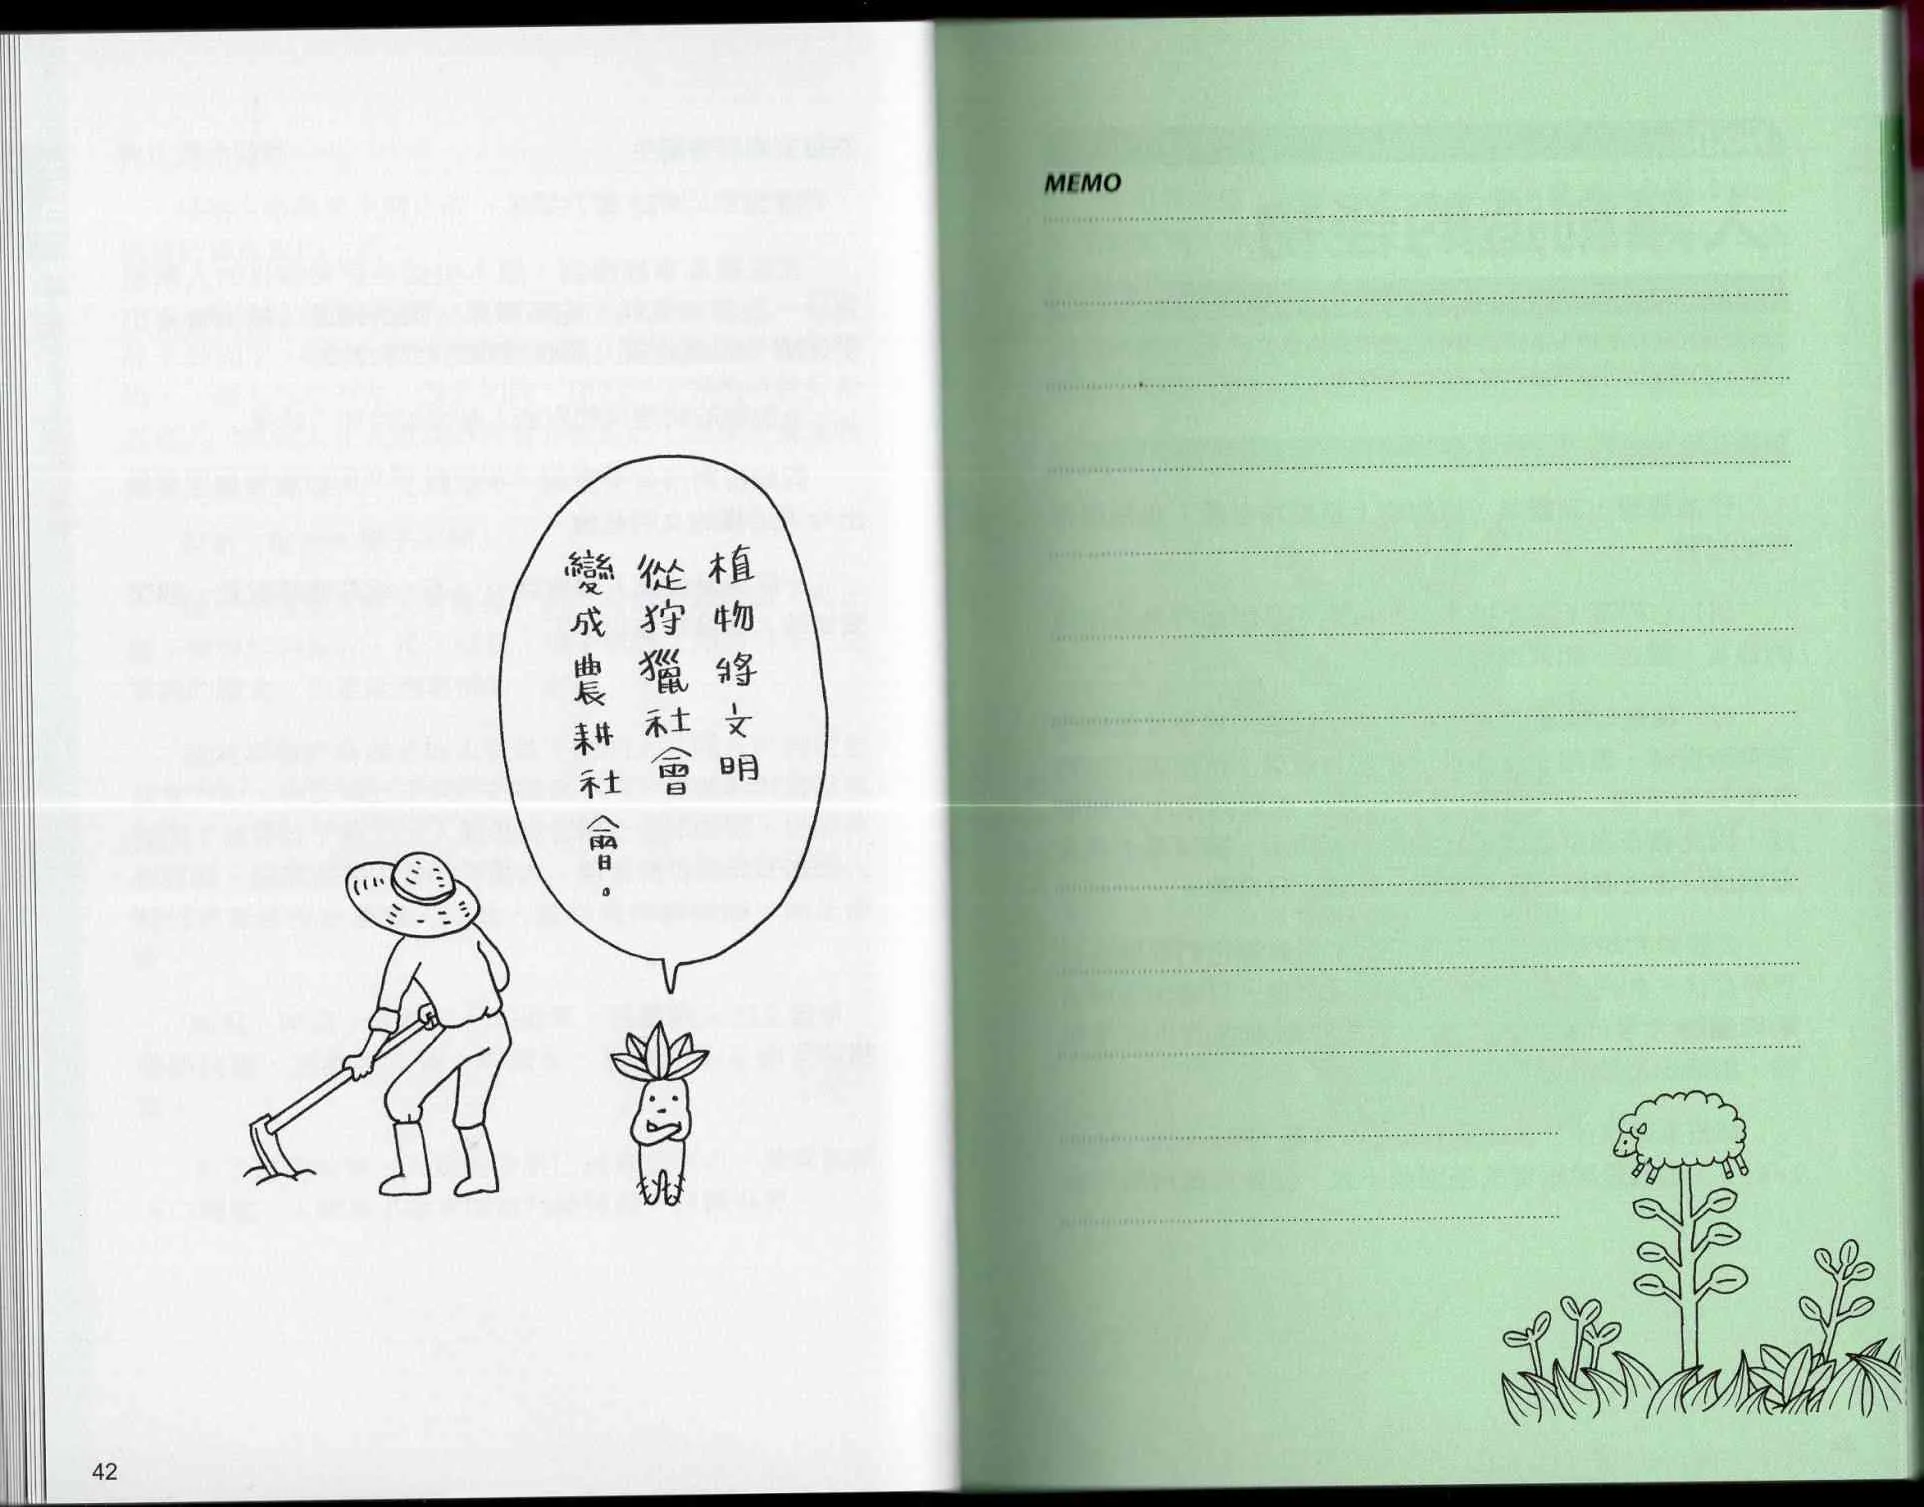 植物將文明
從狩獵社會
變成農耕社會。
42
MEMO